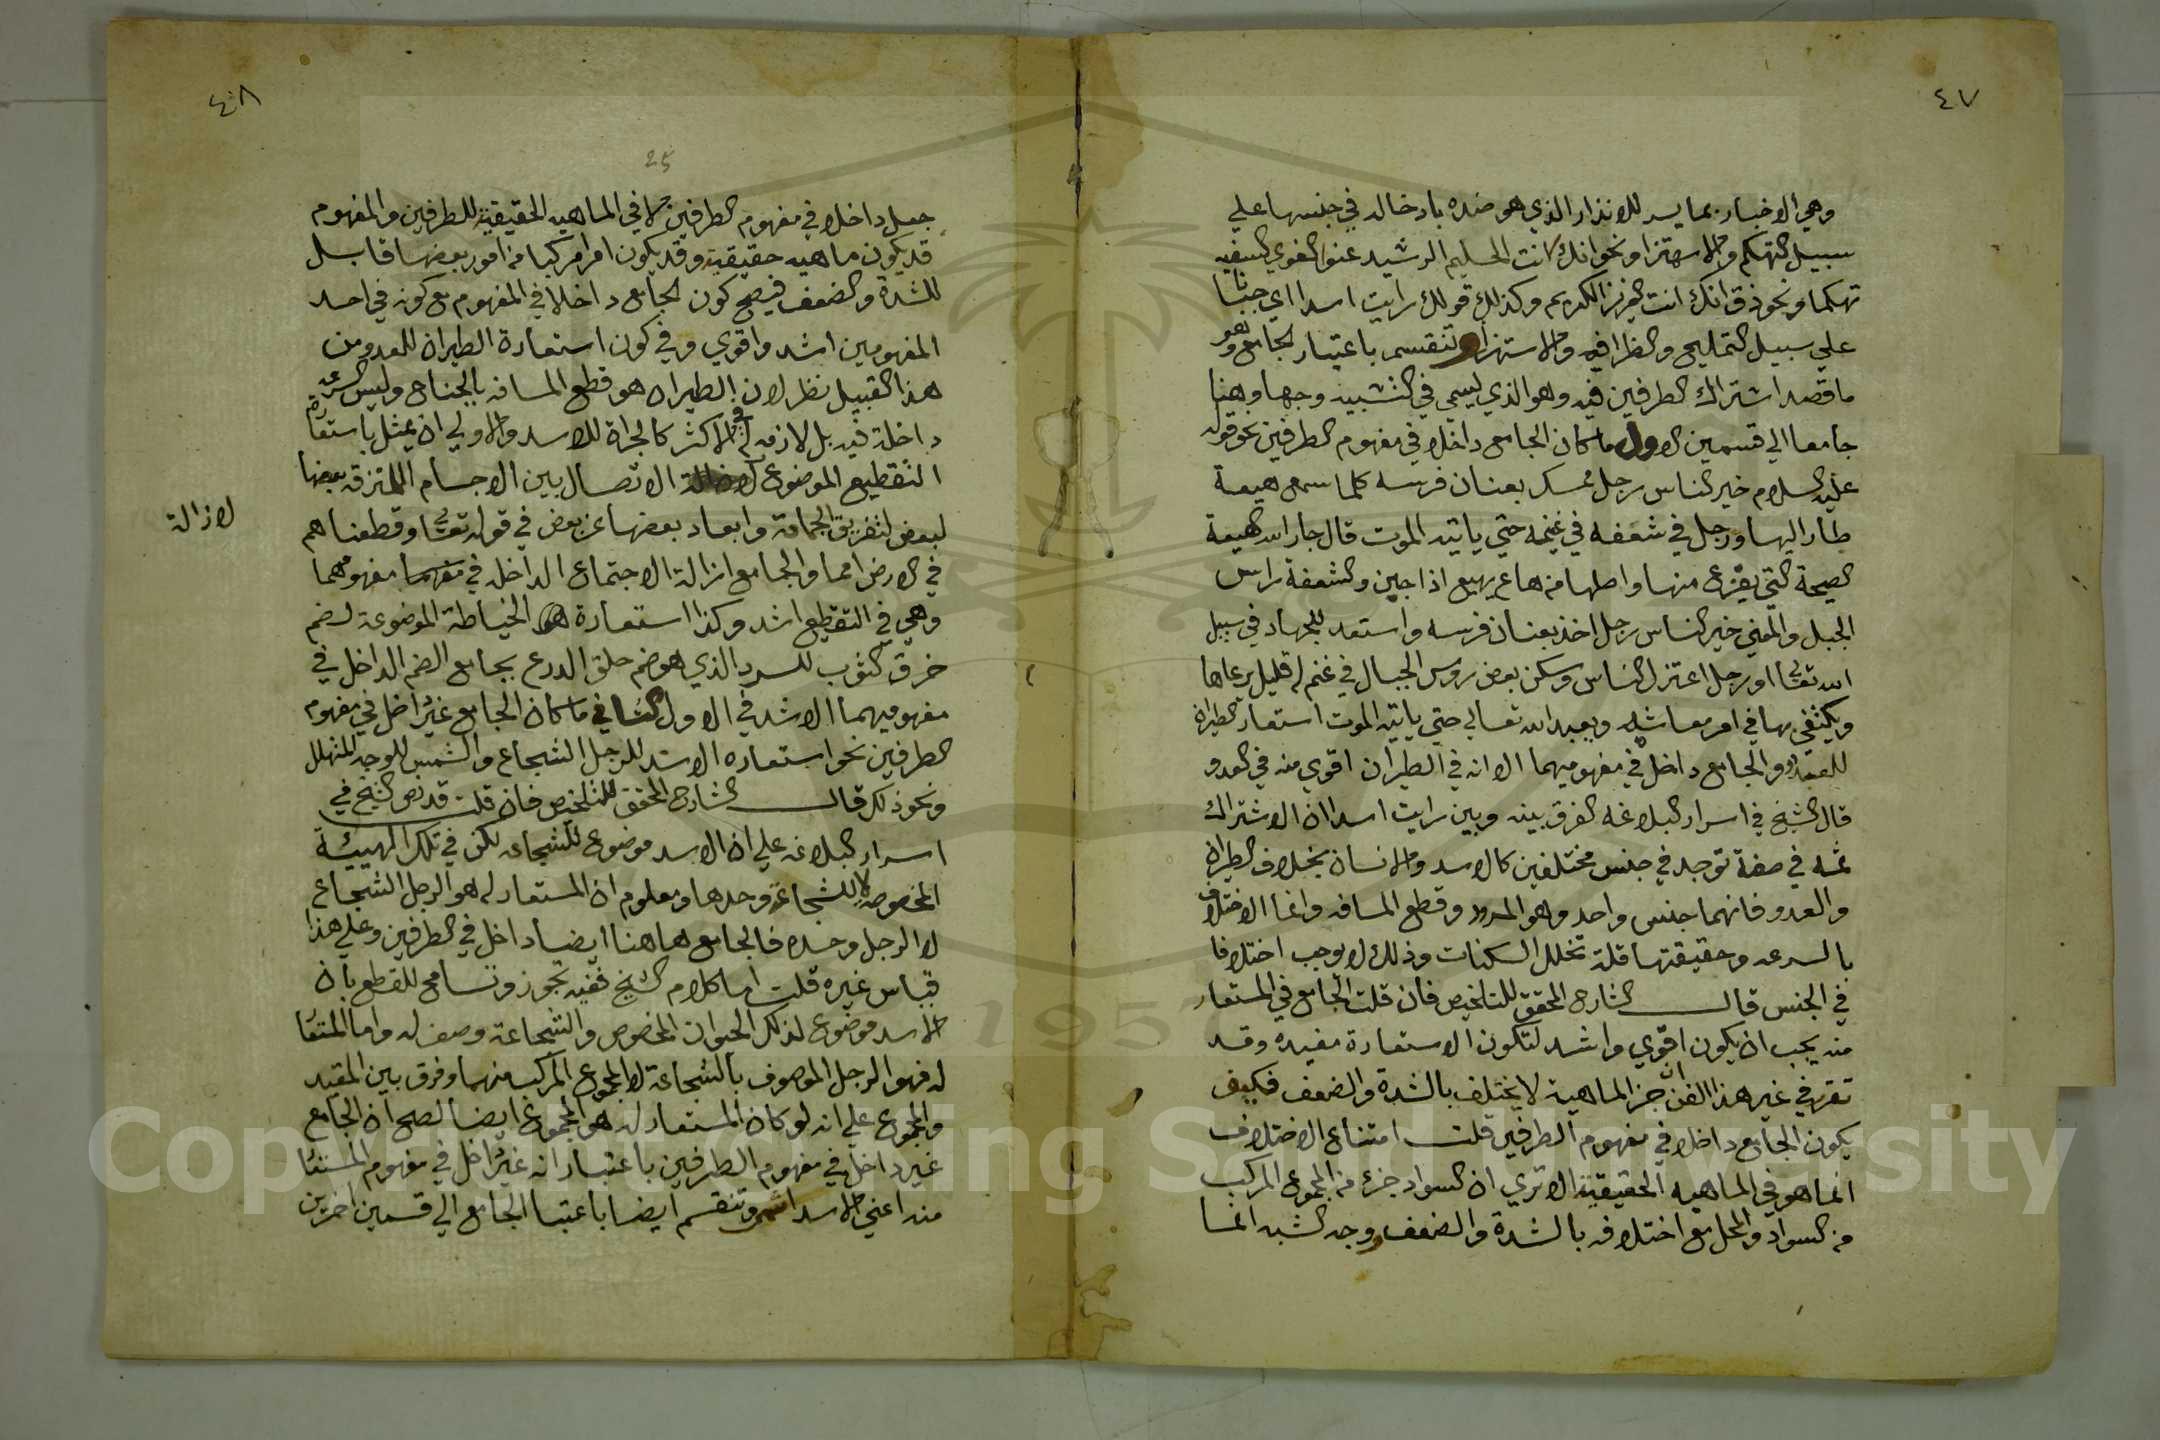 ٤٧
وهي الاخبار بما يسر للانذار الذي هو ضده بادخاله في جنسها علي
سبيل التهكم والاستهزا ونحو انك لانت الحليم الرشيد عنوا الغوي السفيه
تهكما ونحو ذق انك انت العزيز الكريم وكذلك قولك رايت اسدا اي جبانا
علي سبيل التمليح والظرافه والاستهزا وتنقسم باعتبار الجامع وهو
ما قصد اشتراك الطرفين فيه وهو الذي يسمي في التشبيه وجها وهنا
جامعا الي قسمين الاول ما كان الجامع داخلا في مفهوم الطرفين نحو قوله
عليه السلام خير الناس رجل ممسك بعنان فرسه كلما سمع هيعة
طار اليها ورجل في شعفه في غنيمه حتي ياتيه الموت قال جار الله الهيعة
الصيحة التي يفزع منها واصلها من هاع يهيع اذا جبن والشعفة راس
الجبل والمعني خير الناس رجل اخذ بعنان فرسه واستعد للجهاد في سبيل
الله تعالي او رجل اعتزل الناس وسكن بعض روس الجبال في غنم له قليل يرعاها
ويكتفي بها في امر معاشه ويعبد الله تعالي حتي ياتيه الموت استعار الطيران
للعدو والجامع داخل في مفهوميهما الا انه في الطيران اقوي منه في العدو
قال الشيخ في اسرار البلاغه الفرق بينه وبين رايت اسدا ان الاشتراك
ثمه في صفة توجد في جنس مختلفين كالاسد والانسان بخلاف الطيران
والعدو فانهما جنس واحد وهو المرور وقطع المسافه وانما الاختلاف
بالسرعه وحقيقتها قلة تخلل السكنات وذلك لا يوجب اختلافا
في الجنس قال الشارح المحقق للتلخيص فان قلت الجامع في المستعار
منه يجب ان يكون اقوي واشد لتكون الاستعارة مفيده وقد
تقرر في غير هذا الفن ان جز الماهية لا يختلف بالشدة والضعف فكيف
يكون الجامع داخلا في مفهوم الطرفين قلت امتناع الاختلاف
انما هو في الماهيه الحقيقية الا تري ان السواد جزء من المجموع المركب
من السواد والمحل مع اختلافه بالشدة والضعف ووجه الشبه انما
٤٨
25
جعل داخلا في مفهوم الطرفين لا في الماهيه الحقيقية للطرفين والمفهوم
قد يكون ماهيه حقيقية وقد يكون امرا مركبا من امور بعضها قابل
للشدة والضعف فيصح كون الجامع داخلا في المفهوم مع كونه في احد
المفهومين اشد واقوي وفي كون استعارة الطيران للعدو من
هذا القبيل نظر لان الطيران هو قطع المسافه بالجناح وليس السرعه
داخلة فيه بل لازمه له في الاكثر كالجراة للاسد والاولي ان يمثل باستعارة
التقطيع الموضوع لازالة الاتصال بين الاجسام الملتزقه بعضها
لازالة
لبعض لتفريق الجماعة وابعاد بعضها عن بعض في قوله تعالي وقطعناهم
في الارض امما والجامع ازالة الاجتماع الداخله في مفهومهما
وهي في التقطيع اشد وكذا استعارة الخياطة الموضوعة لضم
خرق الثوب للسرد الذي هو ضم حلق الدرع بجامع الضم الداخل في
مفهوميهما الاشد في الاول الثاني ما كان الجامع غير داخل في مفهوم
الطرفين نحو استعاره الاسد للرجل الشجاع والشمس للوجه المتهلل
ونحو ذلك قال الشارح المحقق للتلخيص فان قلت قد نص الشيخ في
اسرار البلاغه علي ان الاسد موضوع للشجاعه لكن في تلك الهيئة
المخصوصه لا للشجاعة وحدها ومعلوم ان المستعار له هو الرجل الشجاع
لا الرجل وحده فالجامع هاهنا ايضا داخل في الطرفين وعلي هذا
قياس غيره قلت اما كلام الشيخ ففيه تجوز وتسامح للقطع بان
الاسد موضوع لذلك الحيوان المخصوص والشجاعة وصف له واما المستعا
له فهو الرجل الموصوف بالشجاعة لا المجموع المركب منهما وفرق بين المقيد
والمجموع علي انه لو كان المستعار له هو المجموع ايضا لصح ان الجامع
غير داخل في مفهوم الطرفين باعتبار انه غير داخل في مفهوم المستعا
منه اعني الاسد انتهي وتنقسم ايضا باعتبا الجامع الي قسمين اخرين
Copyright © King Saud University
1957